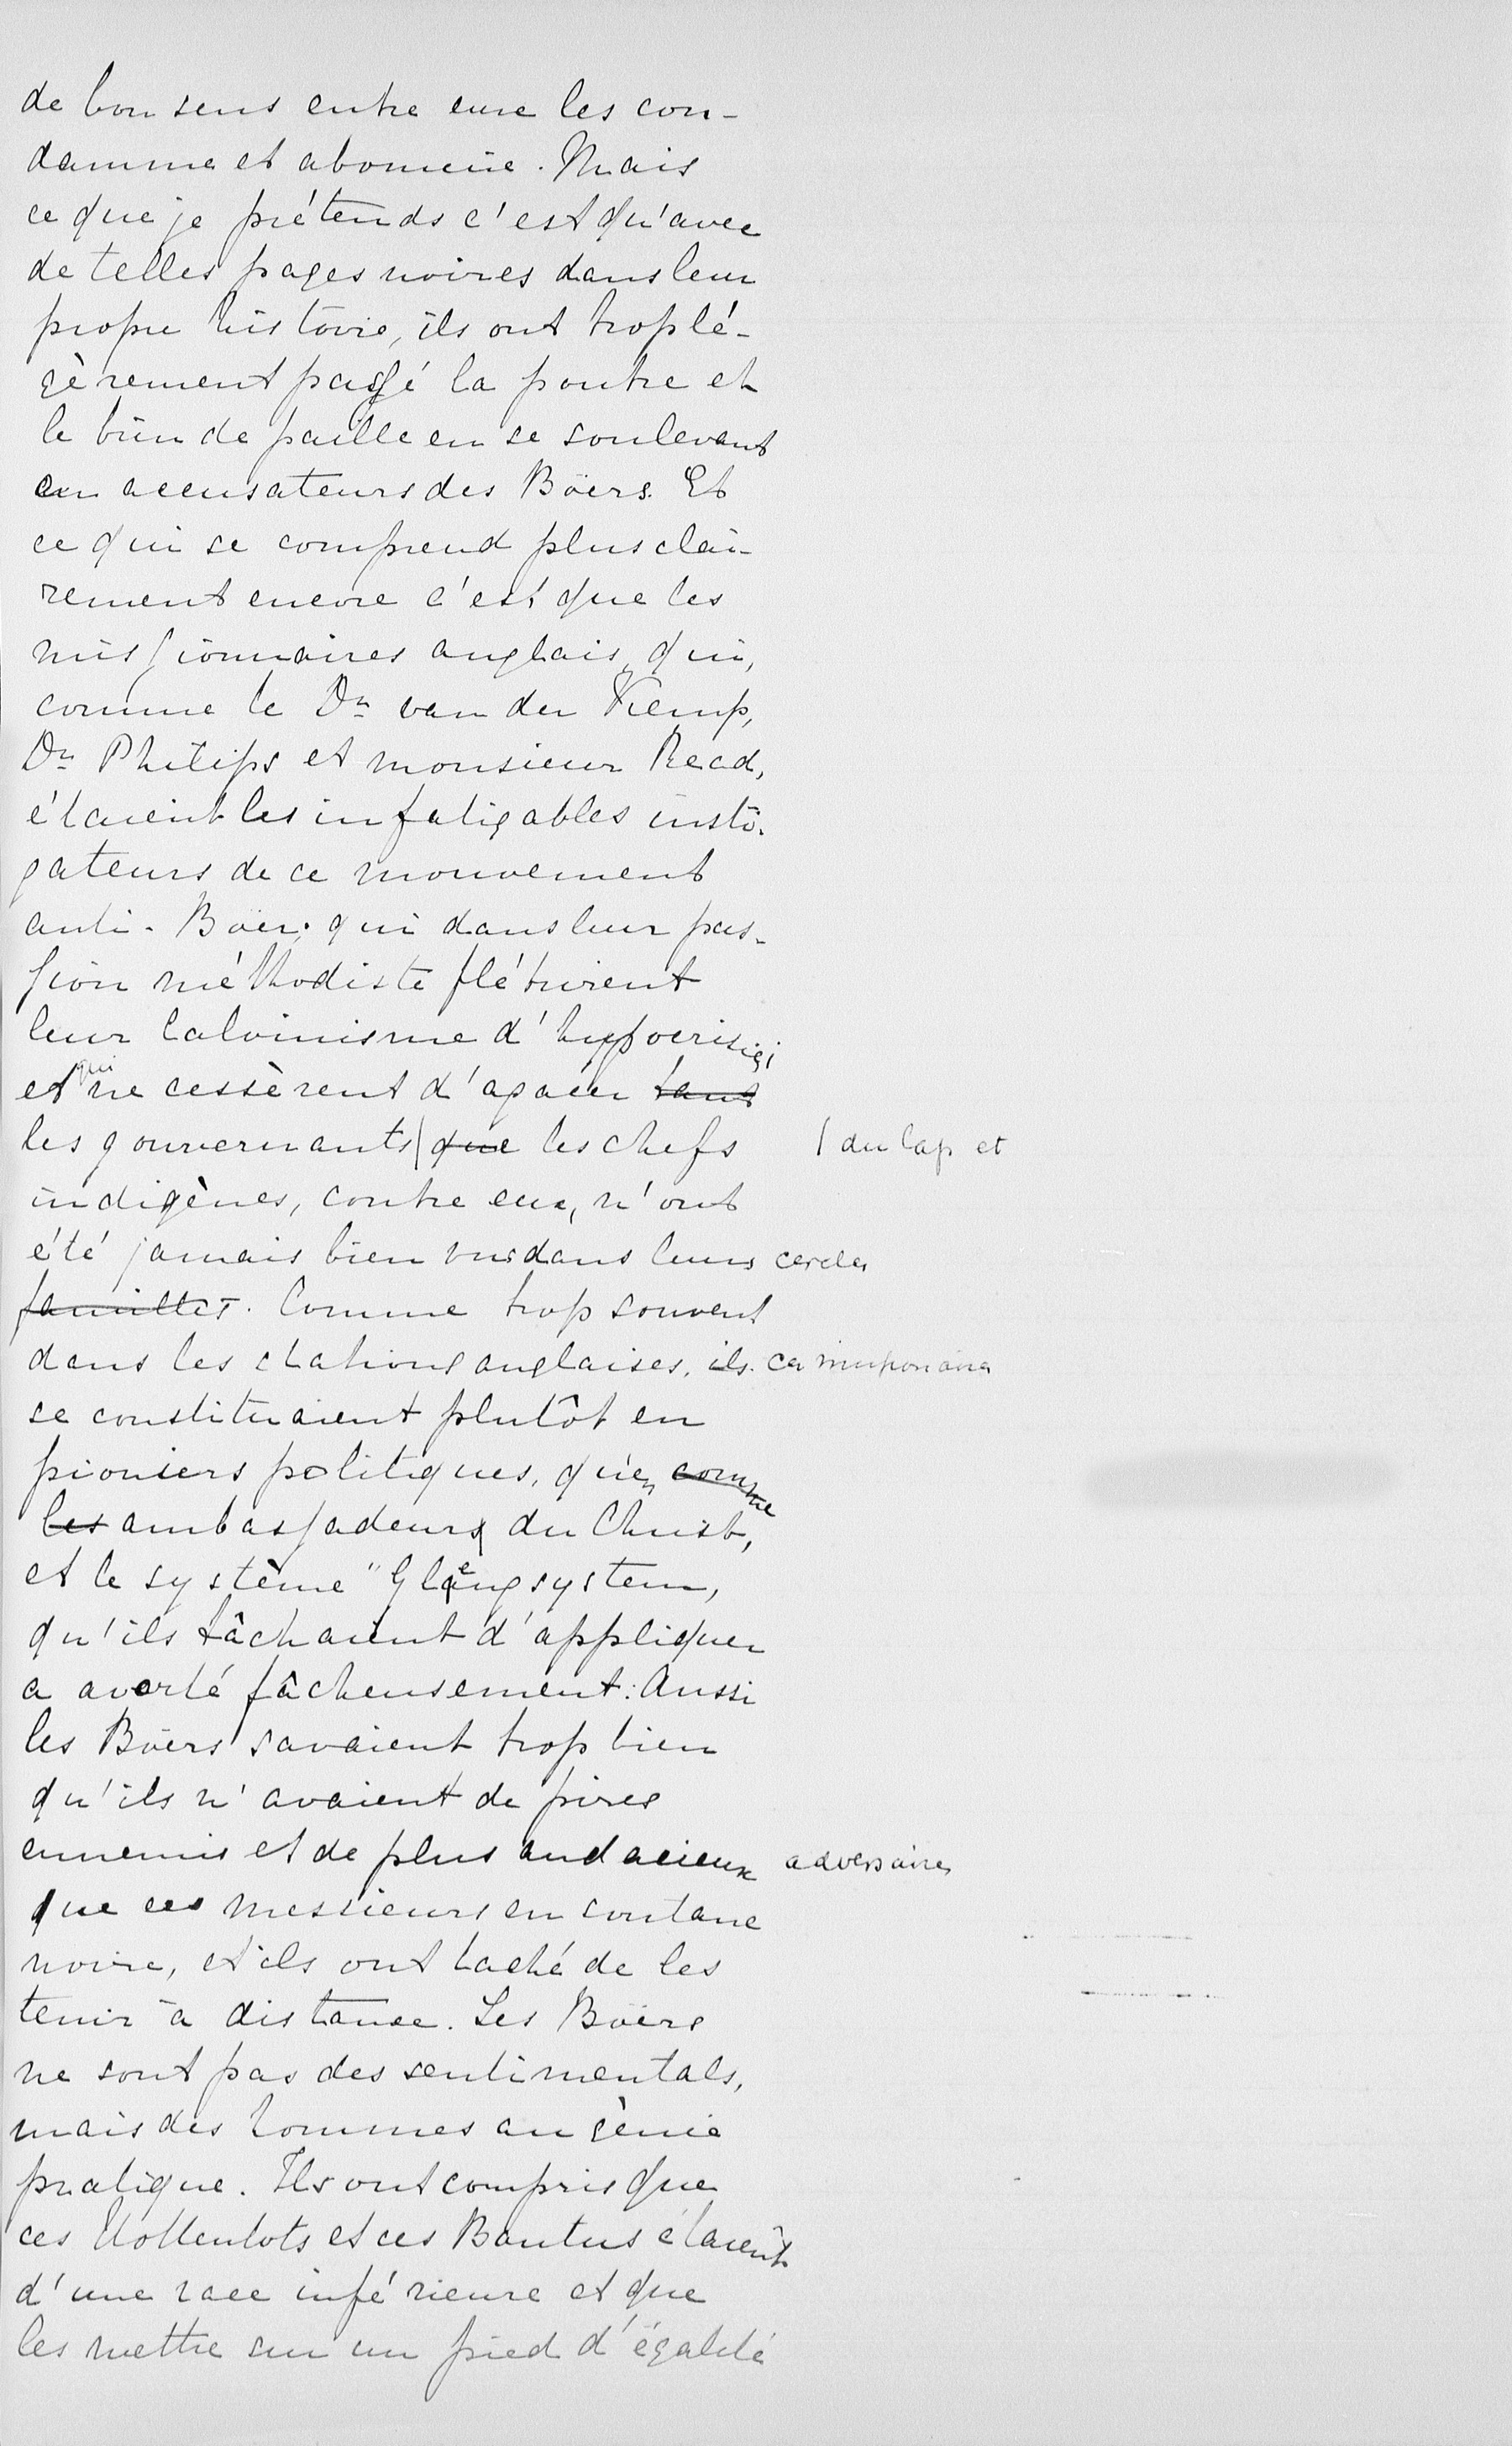 de bon sens entre eux les con-
damne et abomine. Mais
ce que je prétends c'est qu'avec
de telles pages noires dans leur
propre histoire, ils ont trop lé-
gèrement passé la poutre et
le brin de paille en se soulevant
en accusateurs des Boërs. Et
ce qui se comprend plus clai-
rement encore c'est que les
missionnaires anglais, qui,
comme le Dr van der Kemp,
Dr Philips et monsieur Read,
étaient les infatigables insti-
gateurs de ce mouvement
anti-Boër; qui dans leur pas-
sion méthodiste flétrirent
leur Calvinisme d'hypocrisie;
et qui ne cessèrent d'agacer tant
les gouvernants | que les chefs | du Cap et
indigènes, contre eux, n'ont
été jamais bien vus dans leurs cercles
familles. Comme trop souvent
dans les stations anglaises, ils ces missionaires
se constituaient plutôt en
pioniers politiques, qu'en comme
les ambassadeurs du Christ,
et le système "Gleng system,
qu'ils tâchaient d'appliquer
a avorté fâcheusement. Aussi
les Boërs savaient trop bien
qu'ils n'avaient de pires
ennemis et de plus audacieux adversaires
que ces messieurs en soutane
noire, et ils ont taché de les
tenir à distance. Les Boërs
ne sont pas des sentimentals,
mais des hommes au génie
pratique. Ils ont compris que
ces Hottentots et ces Bantus étaient
d'une race inférieure et que
les mettre sur un pied d'égalité